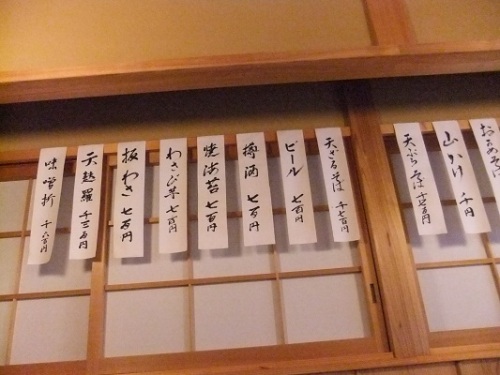 おかめそば
山かけ 千円
天ぷらそば 千七百円
天ざるそば 千七百円
ビール 七百円
樽酒 七百円
焼海苔 七百円
わさび芋 七百円
板わさ 七百円
天麩羅 千三百円